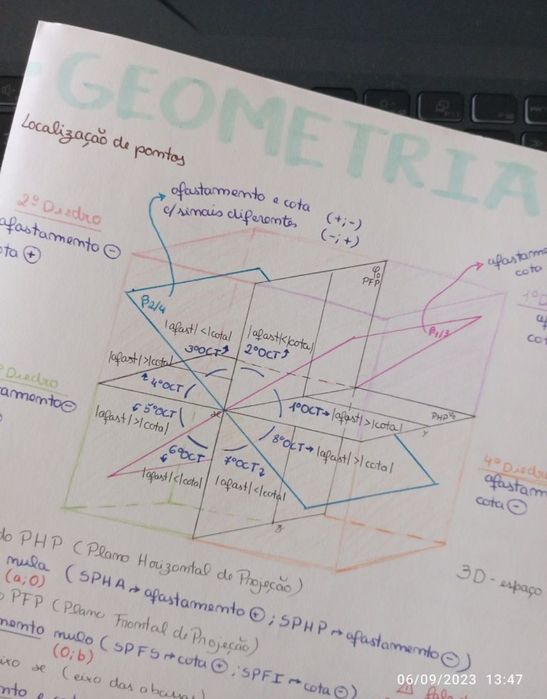 GEOMETRIA
Localização de pontos
afastamento e cota
c/sinais diferentes (+;-)
(-;+)
2º Diedro
afastamento ⊖
cota ⊕
β2/4
φo
PFP
β1/3
afastame
cota
1º D
|afast|<|cota|
|afast|<|cota|
3ºOCT
2ºOCT
|afast|>|cota|
4ºOCT
Diedro
tamento⊖
|afast|>|cota|
5ºOCT
x
1ºOCT→|afast|>|cota|
PHP
y
6ºOCT
7ºOCT
8ºOCT→|afast|>|cota|
|afast|<|cota|
|afast|<|cota|
z
4º Diedro
afastam
cota ⊖
do PHP (Plano Horizontal de Projeção)
3D-espaço
nula (SPHA→afastamento ⊕; SPHP→afastamento⊖)
(a;0)
o PFP (Plano Frontal de Projeção)
mento nulo (SPFS→cota ⊕; SPFI→cota ⊖)
(0;b)
eixo x (eixo das
06/09/2023 13:47